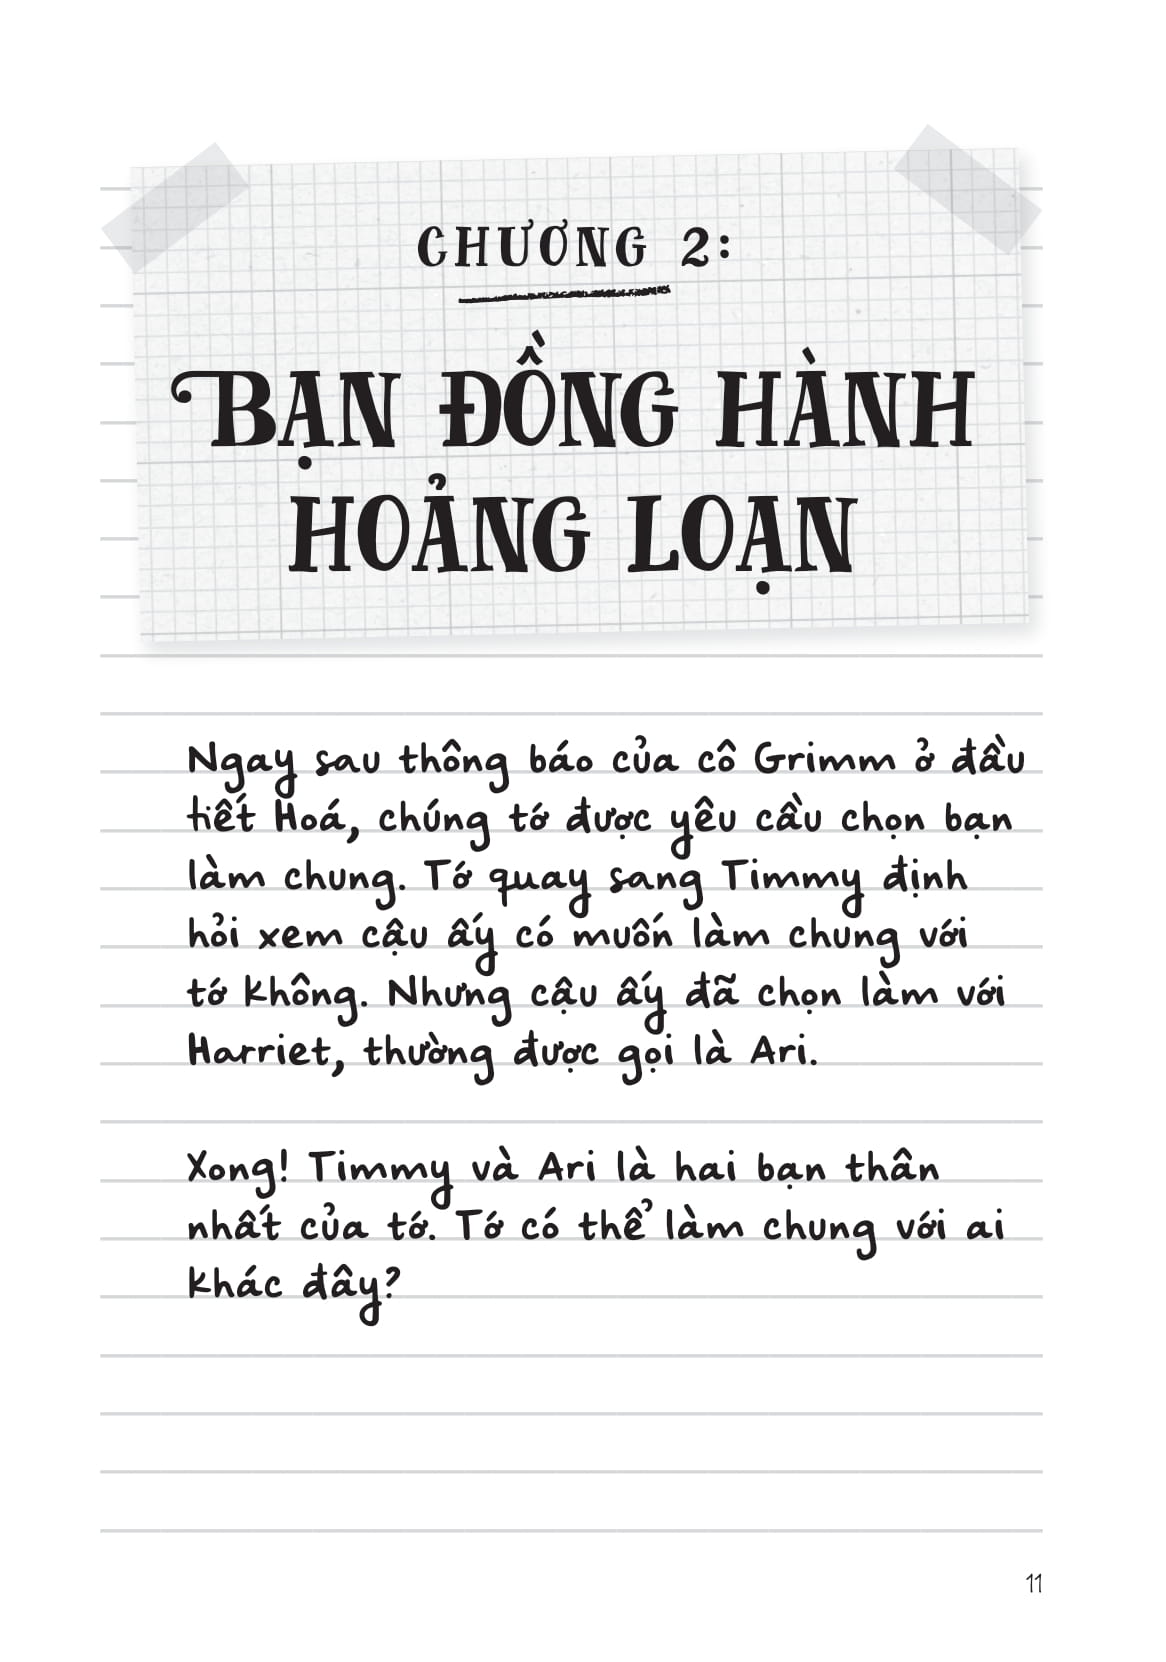 CHƯƠNG 2:
BẠN ĐỒNG HÀNH
HOẢNG LOẠN
Ngay sau thông báo của cô Grimm ở đầu
tiết Hoá, chúng tớ được yêu cầu chọn bạn
làm chung. Tớ quay sang Timmy định
hỏi xem cậu ấy có muốn làm chung với
tớ không. Nhưng cậu ấy đã chọn làm với
Harriet, thường được gọi là Ari.
Xong! Timmy và Ari là hai bạn thân
nhất của tớ. Tớ có thể làm chung với ai
khác đây?
11